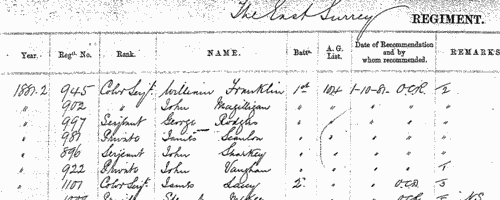 The East Surrey REGIMENT.
Year. Regtl. No. Rank. NAME. Batn. A. G. List. Date of Recommendation and by whom recommended. REMARKS
1881-2 945 Color Serjt. William Franklin 1st 104 1-10-81- O.C.R. 2
" 902 " John Magilligan " " " " "
" 997 Serjeant George Rodgers " " " " "
" 987 Private James Scanlon " " " "
" 896 Serjeant John Sharkey " " " "
" 922 Private John Vaughan " " " " 1
" 1101 Color Serjt. James Lacey 2 " " O.C.R. 3